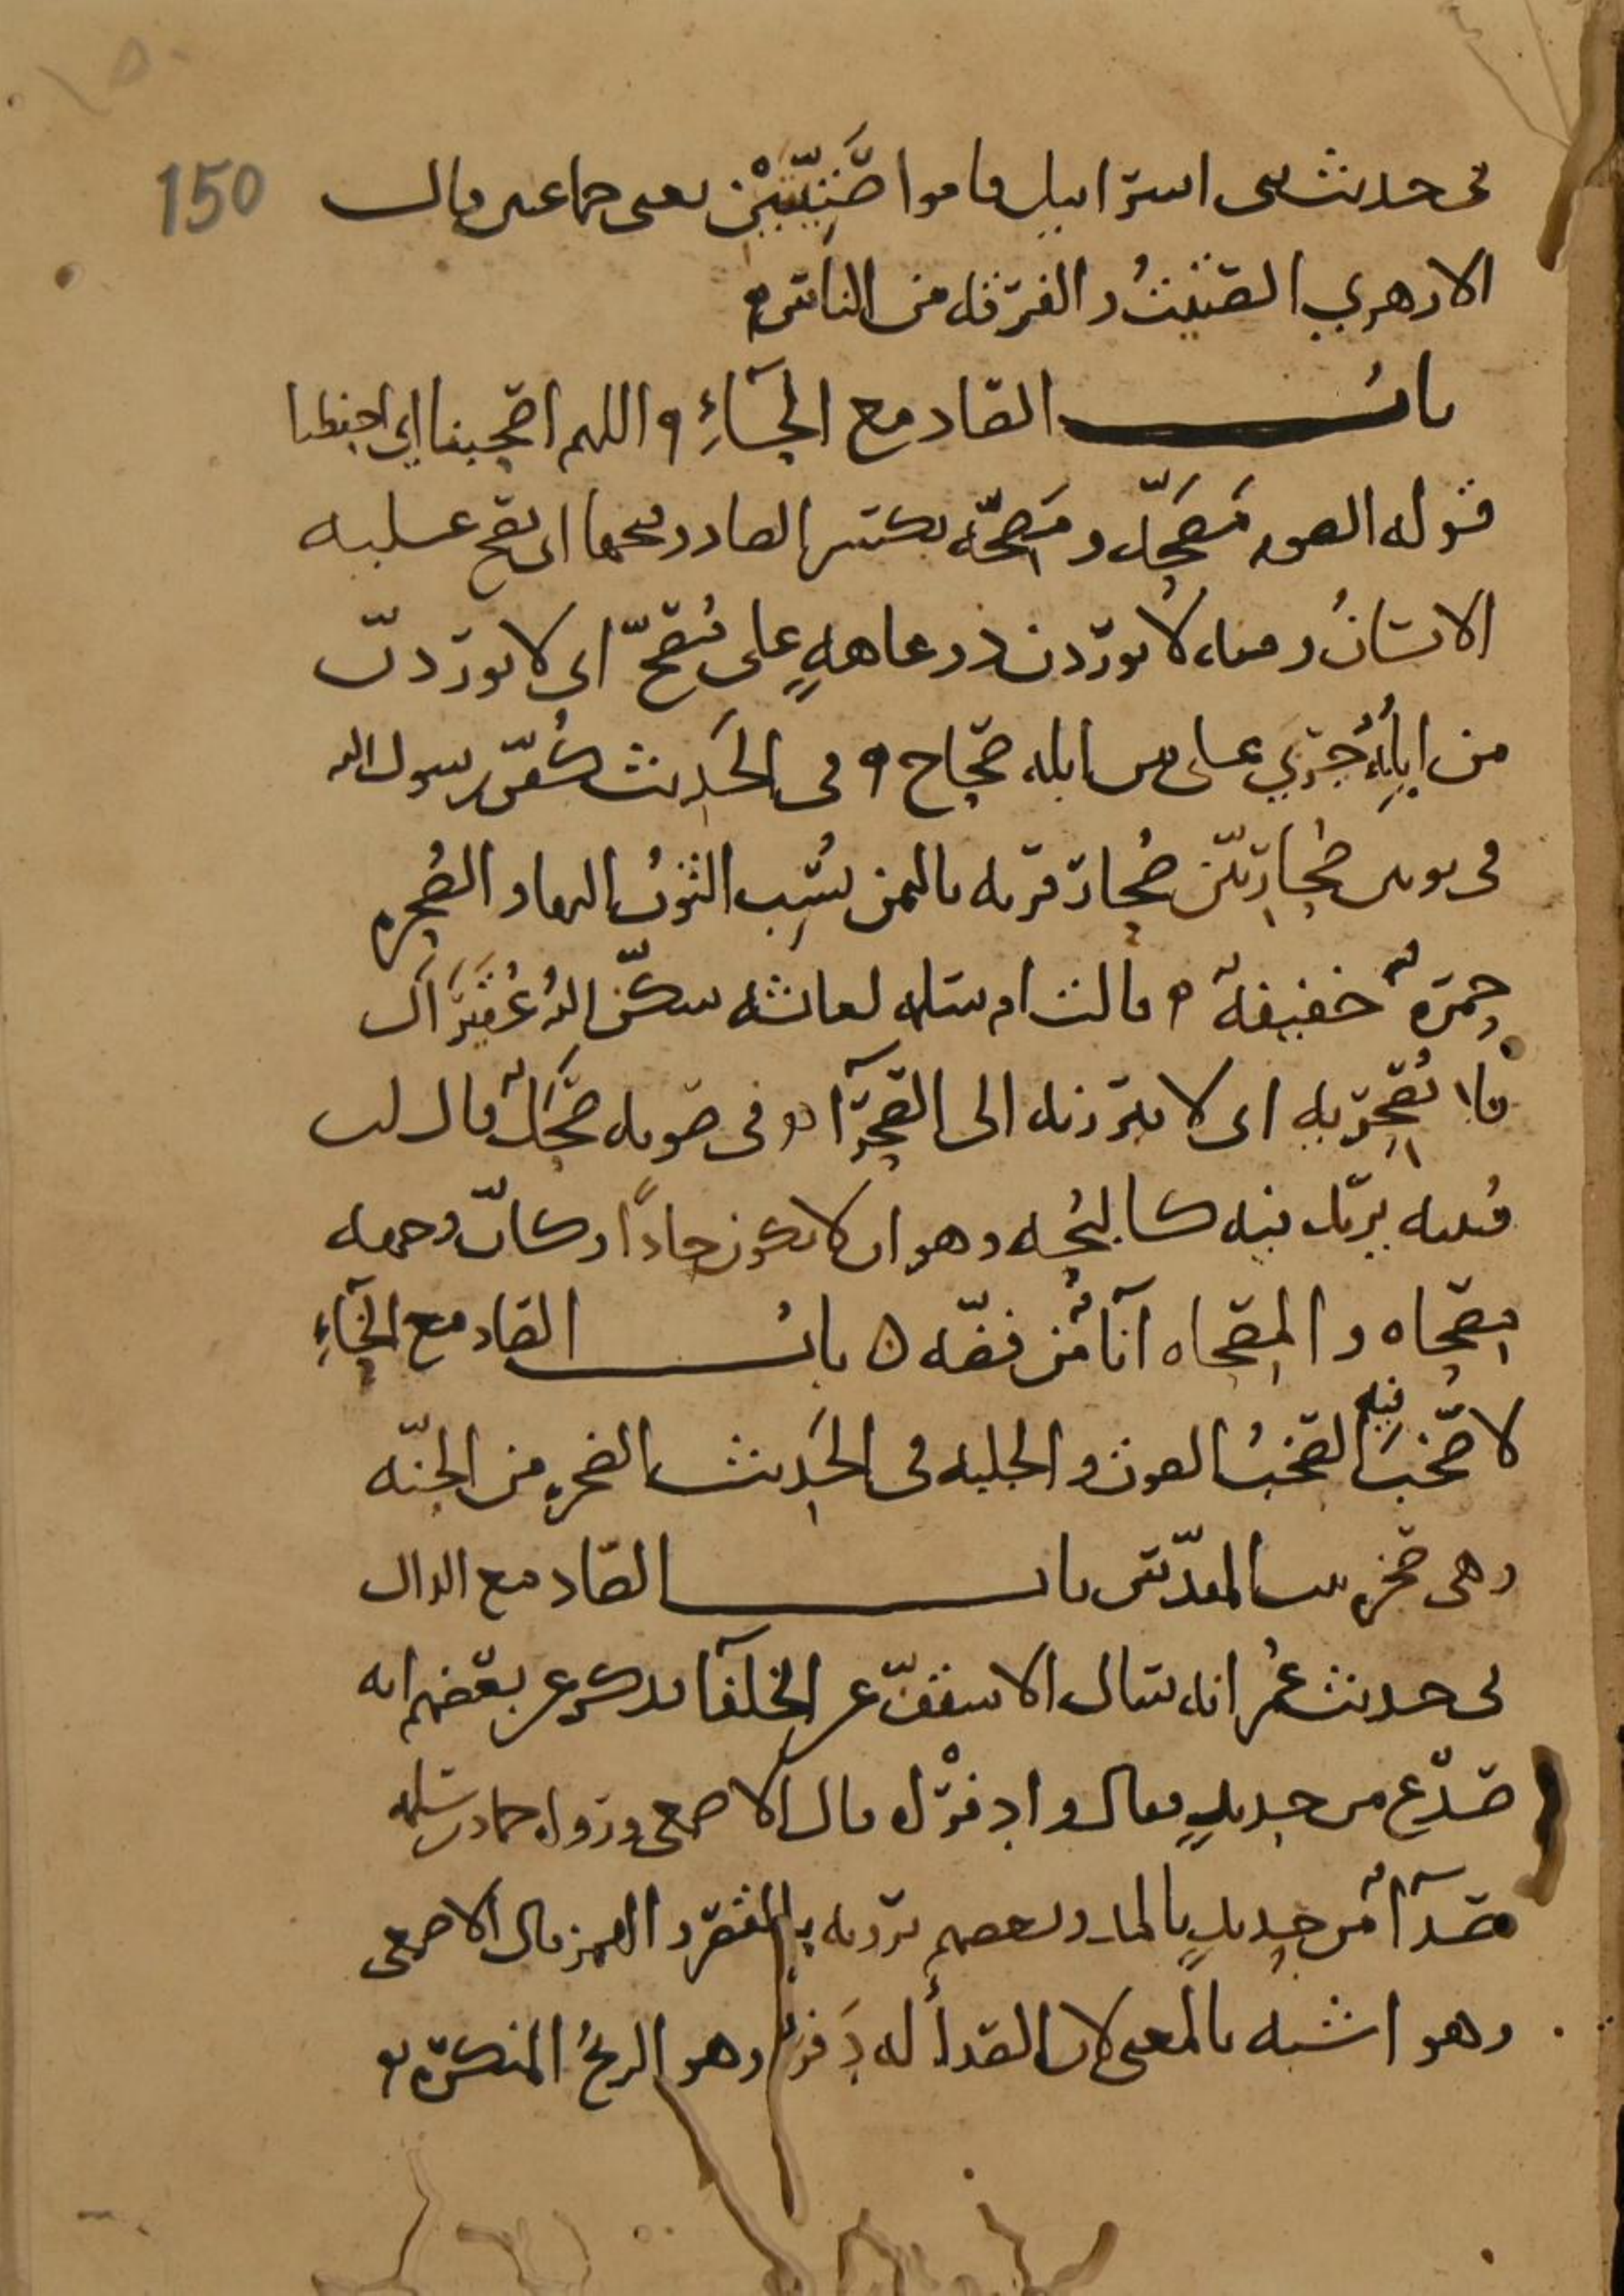 150
في حديث بني اسرائيل قاموا صَتِيتَيْن يعنى جماعتين قال
الازهري الصتيتُ الفرقه من الناس
بابُ الصاد مع الحَآءِ اللهم اصحبنا اي احفظنا
قوله الصوم مَصَحَّه ومَصِحّه بكسر الصاد وفتحها اى يصح عليه
الانسانُ ومنه لا يوردن ذو عاهةٍ على مُصحّ اى لا يوردنّ
من ابلهُ جربي على من ابله صحاح وفى الحديث كُفّن رسول الله
في ثوبين صُحاريّين صُحار قريه باليمن نُسِب الثوبُ اليها والصُحره
حمرهٌ خفيفهٌ قالت ام سلمه لعائشه سكّن اللهُ عُقَيراك
فلا تُصْحِريه اى لا تبرزيه الى الصحرآ وفى صوته صَحَلٌ قال ابن
قتيبه يريد فيه كالبُحّه وهو ان لا يكون حادًا وكانّ وجهه
مصحاه والمصحاه انآءٌ من فضّه بابُ الصاد مع الخآءِ
لا صَخَبَ فيه الصخبُ الصوت والجلبه في الحديث الصخره من الجنّه
وهى صخره بيت المقدّس باب الصاد مع الدال
في حديث عُمر انه سال الاسقفّ عن الخلفآ فذكر عن بعضهم انه
صَدَع من حديدٍ فقال وا دفْراه قال الاصمعى ورواه حماد بن سلمه
صدآءٌ من حديدٍ بالمد وبعضهم يرويه بالقصر والهمز قال الاصمعى
وهو اشبه بالمعنى لان الصدأ له دَفرٌ وهو الريحُ المنكره